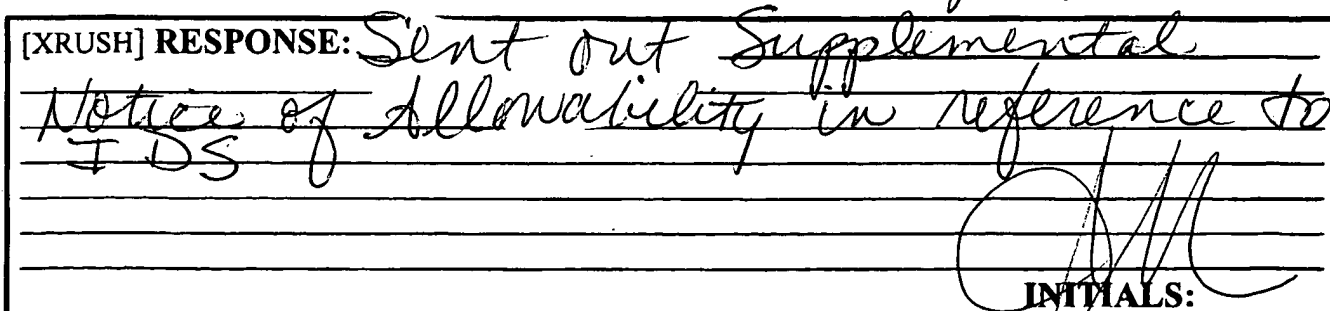 [XRUSH] RESPONSE: Sent out Supplemental
Notice of Allowability in reference to
IDS
INITIALS: